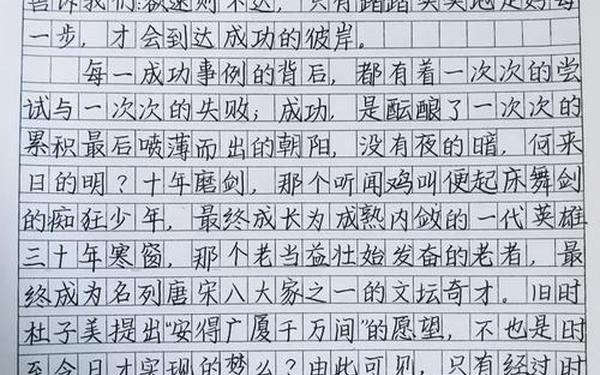 告诉我们:欲速则不达,只有踏踏实实地走好每
一步,才会到达成功的彼岸。
每一成功事例的背后,都有着一次次的尝
试与一次次的失败;成功,是酝酿了一次次的
累积最后喷薄而出的朝阳,没有夜的暗,何来
日的明?十年磨剑,那个听闻鸡叫便起床舞剑
的痴狂少年,最终成长为成熟内敛的一代英雄
三十年寒窗,那个老当益壮始发奋的老者,最
终成为名列唐宋八大家之一的文坛奇才。旧时
杜子美提出“安得广厦千万间”的愿望,不也是时
至今日才实现的梦么?由此可见,只有经过时